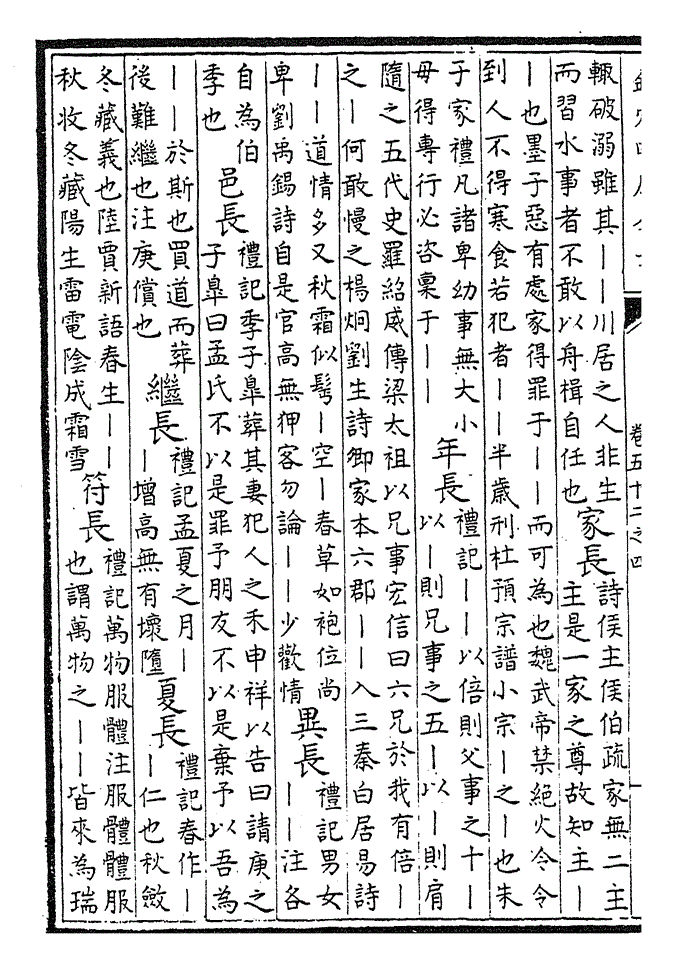 卷五十二之四
輙破溺雖其｜｜川居之人非生
而習水事者不敢以舟楫自任也
家長
詩侯主侯伯疏家無二主
主是一家之尊故知主｜
｜也墨子惡有處家得罪于｜｜而可為也魏武帝禁絕火令令
到人不得寒食若犯者｜｜半歲刑杜預宗譜小宗｜之｜也朱
子家禮凡諸卑幼事無大小
毋得專行必咨稟于｜｜
年長
禮記｜｜以倍則父事之十｜
以｜則兄事之五｜以｜則肩
隨之五代史羅紹威傳梁太祖以兄事宏信曰六兄於我有倍｜
之｜何敢慢之楊炯劉生詩卿家本六郡｜｜入三秦白居易詩
｜｜道情多又秋霜似髩｜空｜春草如袍位尚
卑劉禹錫詩自是官高無狎客勿論｜｜少歡情
異長
禮記男女
｜｜注各
自為伯
季也
邑長
禮記季子臯葬其妻犯人之禾申祥以告曰請庚之
子臯曰孟氏不以是罪予朋友不以是棄予以吾為
｜｜於斯也買道而葬
後難繼也注庚償也
繼長
禮記孟夏之月｜
｜增高無有壞墮
夏長
禮記春作｜
｜仁也秋斂
冬藏義也陸賈新語春生｜｜
秋收冬藏陽生雷電陰成霜雪
符長
禮記萬物服體注服體體服
也謂萬物之｜｜皆來為瑞